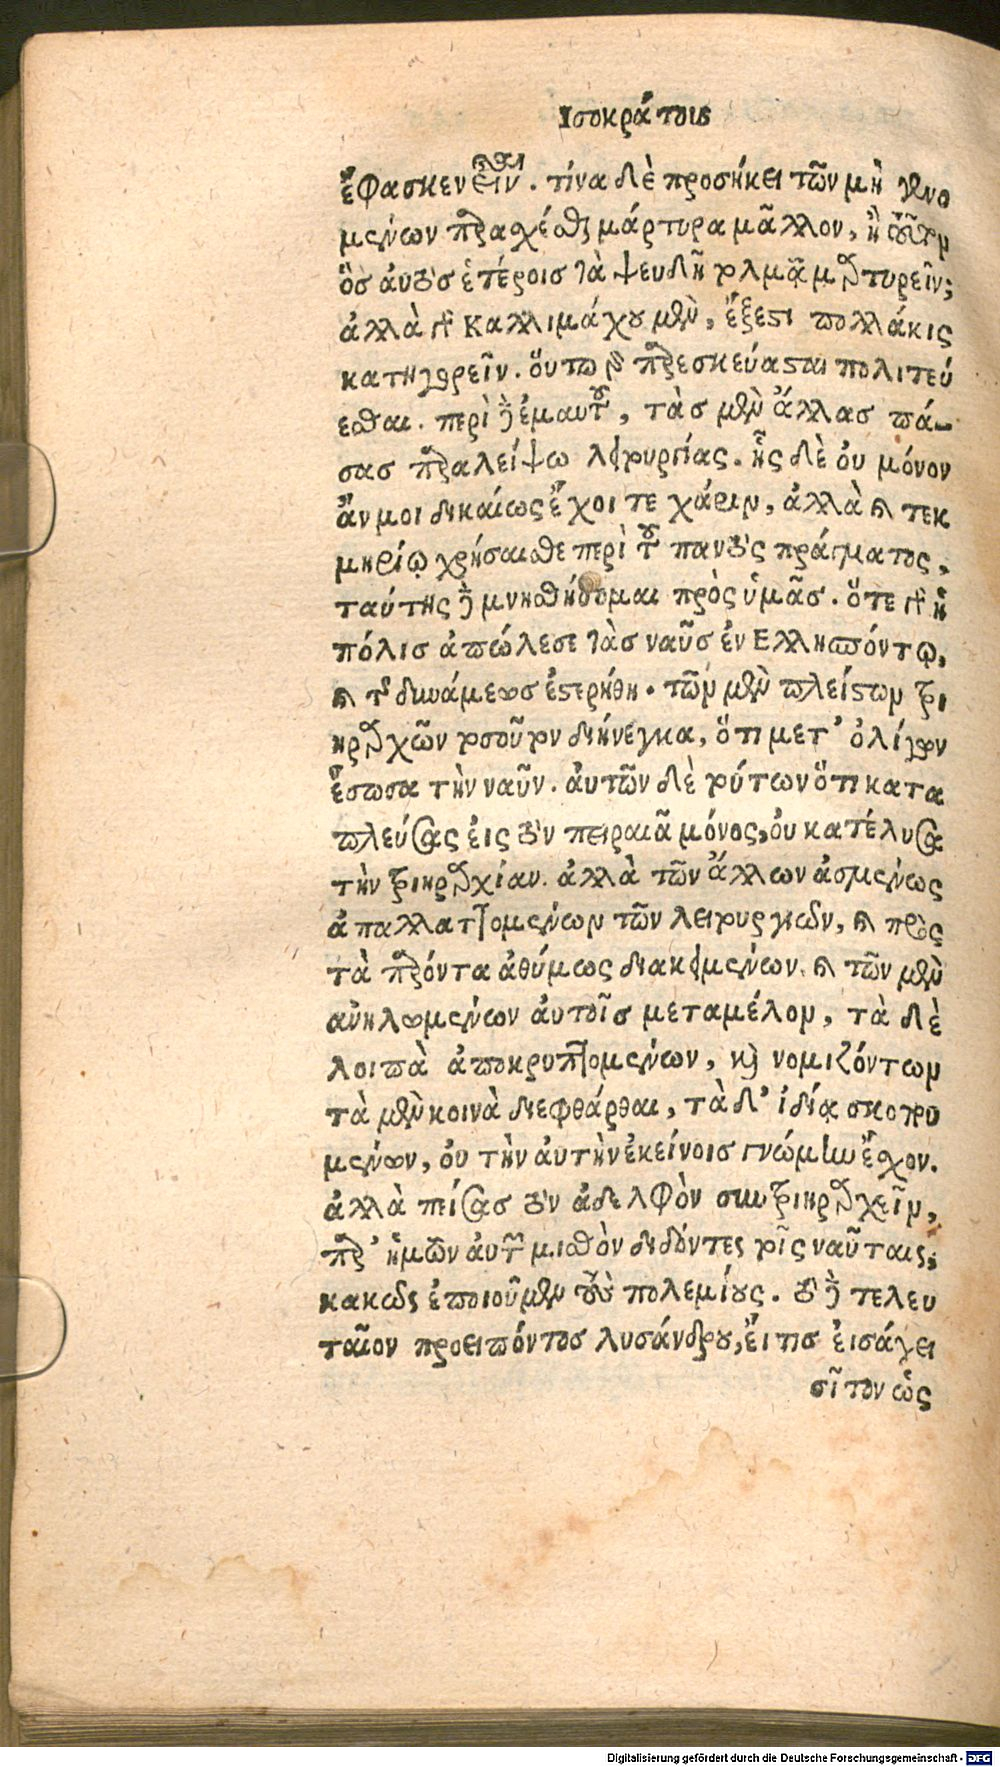 Ισοκράτους
ἔφασκεν εἶναι. τίνα δὲ προσήκει τῶν μὴ γενο
μένων παρασχέσθαι μάρτυρα μᾶλλον, ἢ τοῦτον
ὃσ ἀυτὸσ ἑτέροισ τὰ ψευδῆ τολμᾷ μαρτυρεῖν;
ἀλλὰ γὰρ Καλλιμάχου μὲν, ἔξεστι πολλάκις
κατηγορεῖν. ὅυτω γὰρ παρεσκεύασται πολιτεύ
εσθαι. περὶ δὲ ἐμαυτοῦ, τὰσ μὲν ἄλλασ πά-
σασ παραλείψω λειτουργίας. ἧς δὲ ὀυ μόνον
ἄν μοι δικαίως ἔχοι τε χάριν, ἀλλὰ καὶ τεκ
μηρίῳ χρήσαισθε περὶ τοῦ παντὸς πράγματος,
ταύτης δὲ μνησθήσομαι πρὸς ὑμᾶσ. ὅτε γὰρ ἡ
πόλισ ἀπώλεσε τὰσ ναῦσ ἐν Ελλησπόντῳ,
καὶ τῆς δυνάμεωσ ἐστερήθη. τῶν μὲν πλείστων τρι
ηράρχων τοσοῦτον διήνεγκα, ὅτι μετ' ὀλίγων
ἔσωσα τὴν ναῦν. ἀυτῶν δὲ τούτων ὅτι κατα
πλεύσας ἐις τὸν πειραιᾶ μόνος, ὀυ κατέλυσα
τὴν τριηραρχίαν. ἀλλὰ τῶν ἄλλων ἀσμένως
ἀπαλλαττομένων τῶν λειτουργιῶν, καὶ πρὸς
τὰ παρόντα ἀθύμως διακειμένων. καὶ τῶν μὲν
ἀνηλωμένων ἀυτοῖσ μεταμέλον, τὰ δὲ
λοιπὰ ἀποκρυπτομένων, καὶ νομιζόντων
τὰ μὲν κοινὰ διεφθάρθαι, τὰ δ' ἰδίᾳ σκοπου
μένων, ὀυ τὴν ἀυτὴν ἐκείνοισ γνώμην ἔσχον.
ἀλλὰ πείσασ τὸν ἀδελφὸν συντριηραρχεῖν,
παρ' ἡμῶν ἀυτῶν μισθὸν διδόντες τοῖς ναύταις,
κακῶς ἐποιοῦμεν τοὺς πολεμίους. τὸ δὲ τελευ
ταῖον προειπόντοσ λυσάνδρου, ἔι τισ ἐισάγει
σῖτον ὡς